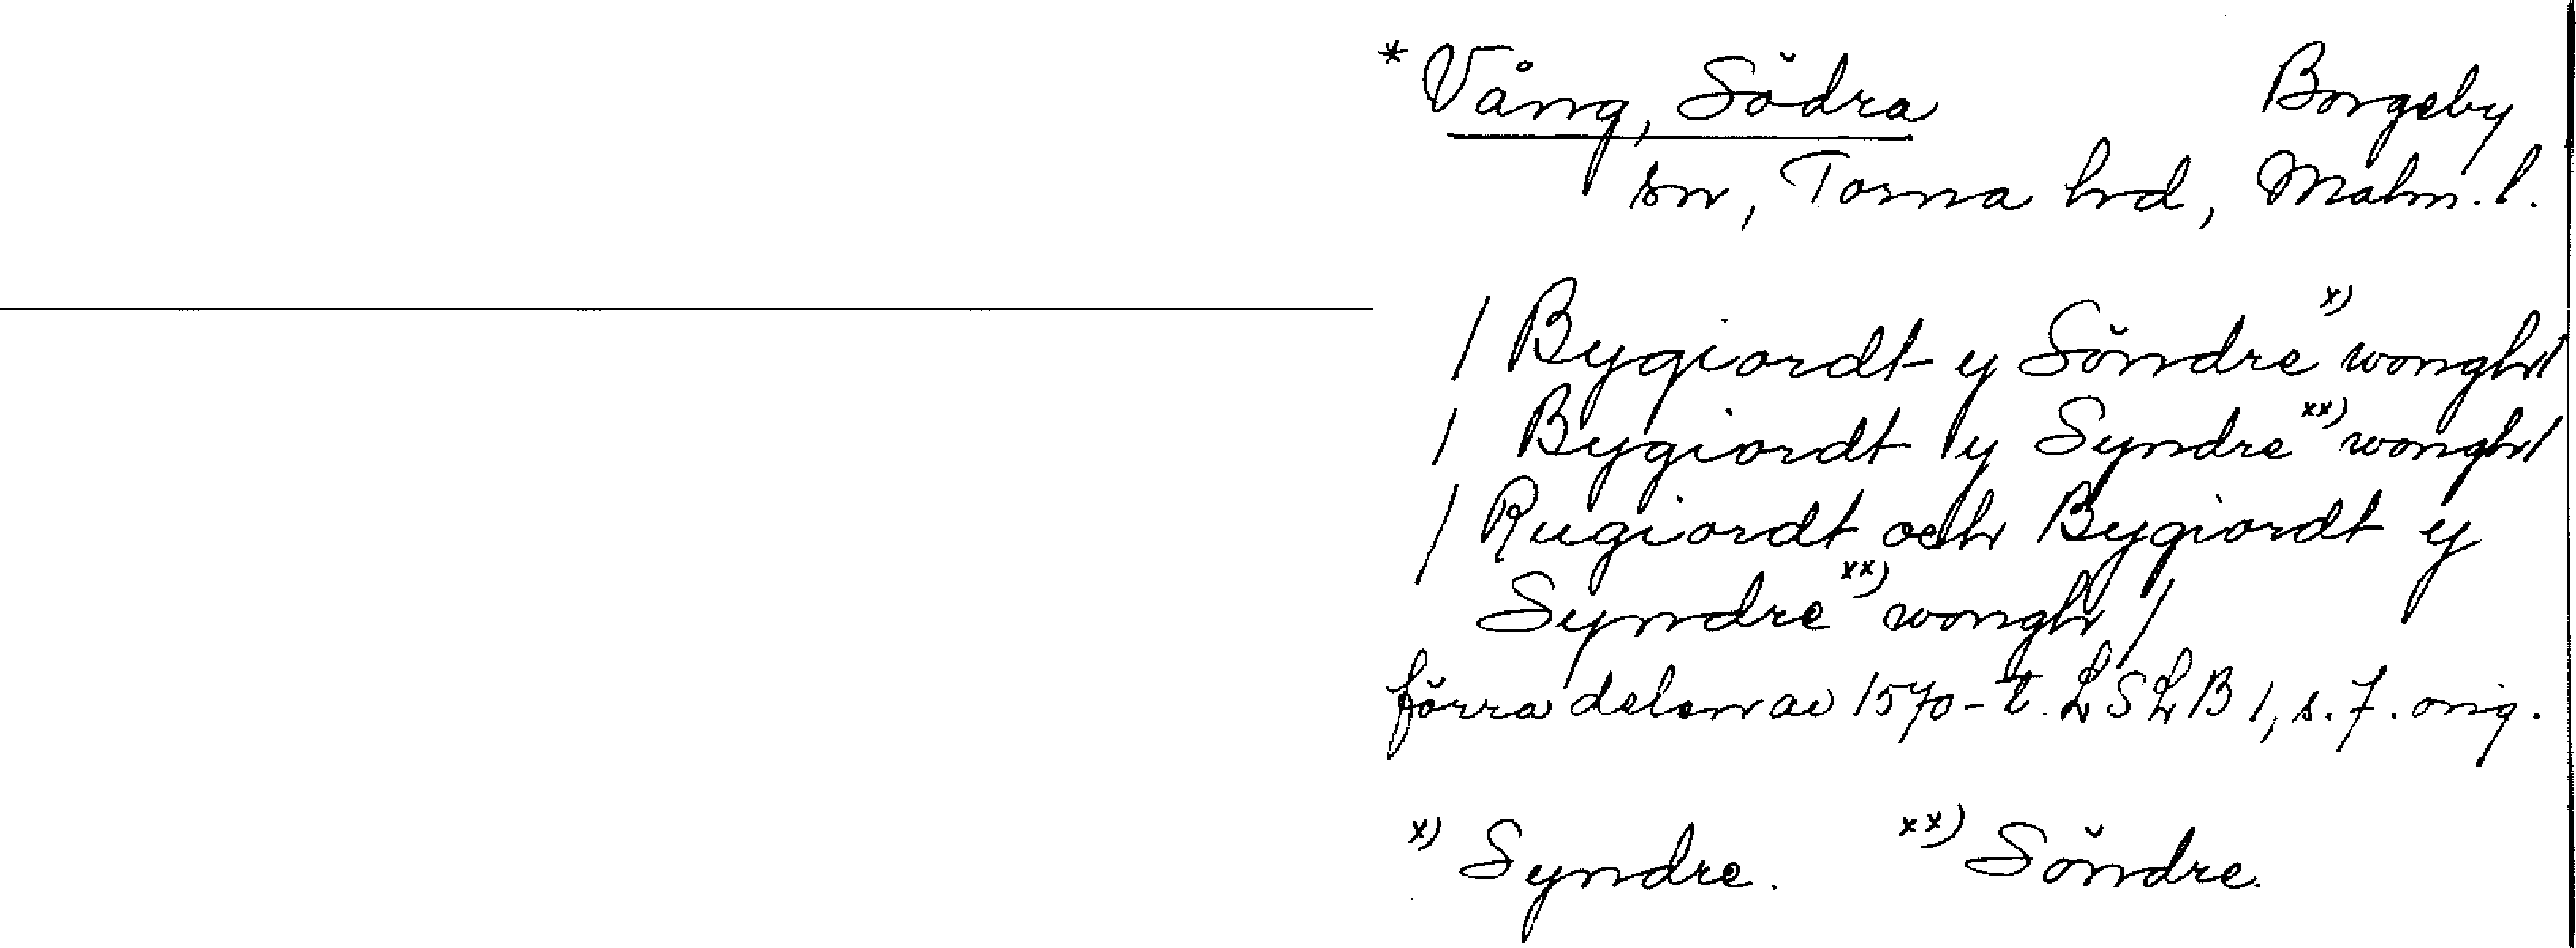 * Vång, Södra Borgeby
sn, Torna hd, Malm. l.
/ Bygiordt y Söndre x) wongh/
/ Bygiordt y Syndre xx) wongh/
/ Rugiordt och Bygiordt y
Syndre xx) wongh /
förra delen av 1570-t. LSLB 1, s. 7. orig.
x) Syndre. xx) Söndre.